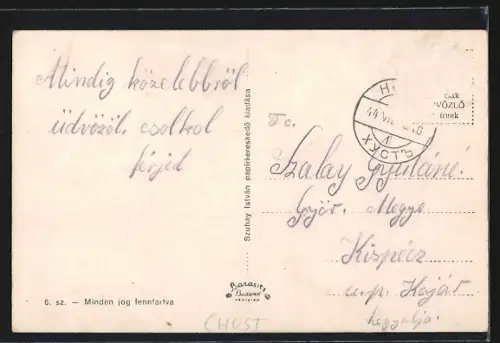 Mindig közelebbről
üdvözöl, csókol
férjed
Szuhay István papírkereskedő kiadása
6. sz. — Minden jog fenntartva
Barasits
Budapest
44 VII
ХУСТЪ
csak
ÜDVÖZLŐ
Tc.
Szalay Gyuláné.
Győr. Megye
Kispécz
u.p. Kajár
hegyalja.
CHUST